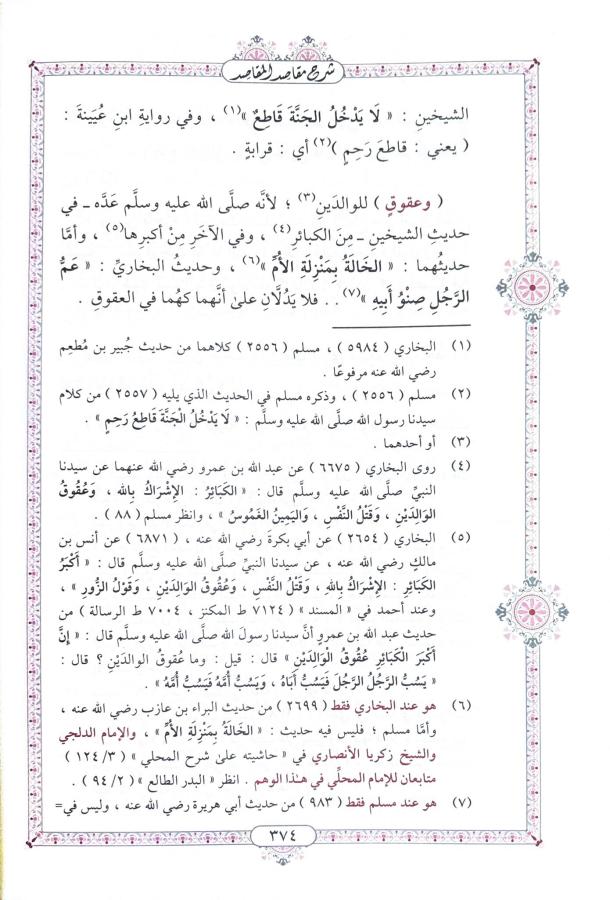 شرح مقاصد المقاصد
الشيخينِ : « لَا يَدْخُلُ الجَنَّةَ قَاطِعٌ »(١) ، وفي روايةِ ابنِ عُيَينةَ :
( يعني : قاطعَ رَحِمٍ )(٢) أي : قرابةٍ .
( وعقوقٍ ) للوالدَينِ(٣) ؛ لأنَّه صلَّى الله عليه وسلَّم عَدَّه ـ في
حديثِ الشيخينِ ـ مِنَ الكبائرِ(٤) ، وفي الآخَرِ مِنْ أكبرِها(٥) ، وأمَّا
حديثُهما : « الخَالَةُ بِمَنْزِلَةِ الأُمِّ »(٦) ، وحديثُ البخاريِّ : « عَمُّ
الرَّجُلِ صِنْوُ أَبِيهِ »(٧) . . فلا يَدُلَّانِ على أنَّهما كهُما في العقوقِ .
(١) البخاري ( ٥٩٨٤ ) ، مسلم ( ٢٥٥٦ ) كلاهما من حديث جُبير بن مُطعِم
رضي الله عنه مرفوعًا .
(٢) مسلم ( ٢٥٥٦ ) ، وذكره مسلم في الحديث الذي يليه ( ٢٥٥٧ ) من كلام
سيدنا رسول الله صلَّى الله عليه وسلَّم : « لَا يَدْخُلُ الْجَنَّةَ قَاطِعُ رَحِمٍ » .
(٣) أو أحدهما .
(٤) روى البخاري ( ٦٦٧٥ ) عن عبد الله بن عمرو رضي الله عنهما عن سيدنا
النبيِّ صلَّى الله عليه وسلم قال : « الكَبَائِرُ : الإِشْرَاكُ بِاللهِ ، وَعُقُوقُ
الوَالِدَيْنِ ، وَقَتْلُ النَّفْسِ ، وَاليَمِينُ الغَمُوسُ » ، وانظر مسلم ( ٨٨ ) .
(٥) البخاري ( ٢٦٥٤ ) عن أبي بكرة رضي الله عنه ، ( ٦٨٧١ ) عن أنس بن
مالكٍ رضي الله عنه ، عن سيدنا النبي صلَّى الله عليه وسلَّم قال : « أَكْبَرُ
الكَبَائِرِ : الإِشْرَاكُ بِاللهِ ، وَقَتْلُ النَّفْسِ ، وَعُقُوقُ الوَالِدَيْنِ ، وَقَوْلُ الزُّورِ » ،
وعند أحمد في « المسند » ( ٧١٢٤ ط المكنز ، ٧٠٠٤ ط الرسالة ) من
حديث عبد الله بن عمرٍو أنَّ سيدنا رسولَ الله صلَّى الله عليه وسلَّم قال : « إِنَّ
أَكْبَرَ الْكَبَائِرِ عُقُوقُ الْوَالِدَيْنِ » قال : قيل : وما عُقوقُ الوالدَيْنِ ؟ قال :
« يَسُبُّ الرَّجُلُ الرَّجُلَ فَيَسُبُّ أَبَاهُ ، وَيَسُبُّ أُمَّهُ فَيَسُبُّ أُمَّهُ » .
(٦) هو عند البخاري فقط ( ٢٦٩٩ ) من حديث البراء بن عازب رضي الله عنه ،
وأمَّا مسلم ؛ فليس فيه حديث : « الخَالَةُ بِمَنْزِلَةِ الأُمِّ » ، والإمام الدلجي
والشيخ زكريا الأنصاري في « حاشيته على شرح المحلي » ( ٣/ ١٢٤ )
متابعان للإمام المحلِّي في هـٰذا الوهم . انظر « البدر الطالع » ( ٢/ ٩٤ ) .
(٧) هو عند مسلم فقط ( ٩٨٣ ) من حديث أبي هريرة رضي الله عنه ، وليس في=
٣٧٤